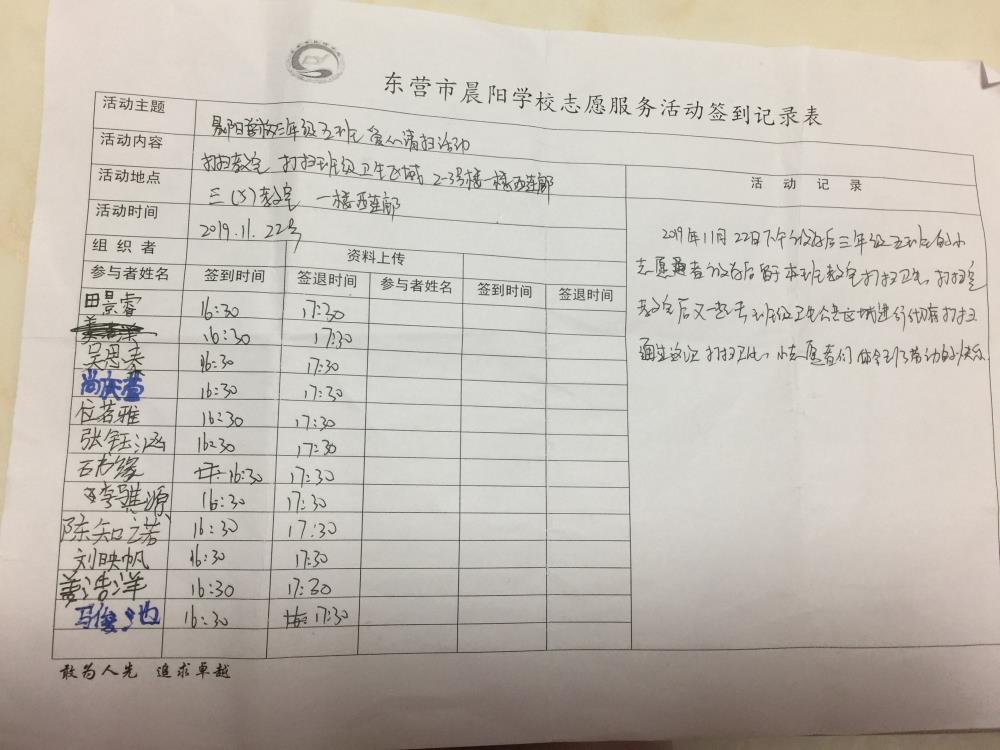 东营市晨阳学校志愿服务活动签到记录表
活动主题 晨阳学校三年级五班爱心清扫活动
活动内容 打扫教室 打扫班级卫生区域 2-3号楼一楼西连廊
活动地点 三(5)教室 一楼西连廊
活动时间 2019.11.22号
活动记录
组织者 资料上传
参与者姓名 签到时间 签退时间 参与者姓名 签到时间 签退时间
田景睿 16:30 17:30
16:30 17:30
吴恩泰 16:30 17:30
16:30 17:30
位若雅 16:30 17:30
张钰涵 16:30 17:30
石书缘 16:30 17:30
李骐源 16:30 17:30
陈知若 16:30 17:30
刘映帆 16:30 17:30
姜浩洋 16:30 17:30
马俊 16:30 17:30
2019年11月22日下午放学后三年级五班的小
志愿者放学后留于本班教室打扫卫生,打扫完
教室后又一起去班级卫生公共区域进行仔细打扫
通过这次打扫卫生,小志愿者们体会到了劳动的快乐.
敢为人先 追求卓越